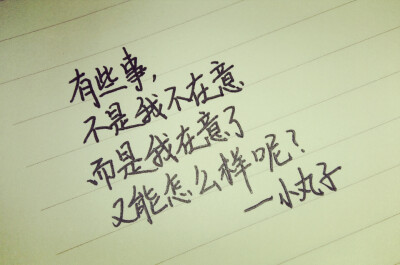 有些事,
不是我不在意
而是我在意了
又能怎么样呢?
一小丸子